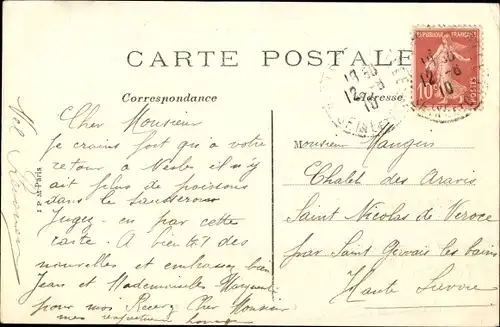 CARTE POSTALE
Correspondance
Adresse
REPUBLIQUE FRANÇAISE
10
POSTES
12-8
10
Cher Monsieur
Je crains fort qu'à votre
retour à Nesles il n'y
ait plus de poissons
dans le
Jugez-en par cette
carte. A bientôt des
nouvelles et embrassez bien
Jean et Mademoiselle Marguerite
pour moi Recevez Cher Monsieur
mes respectueux
I P M Paris
Monsieur Mangin
Chalet des Aravis
Saint Nicolas de Veroce
par Saint Gervais les bains
Haute Savoie